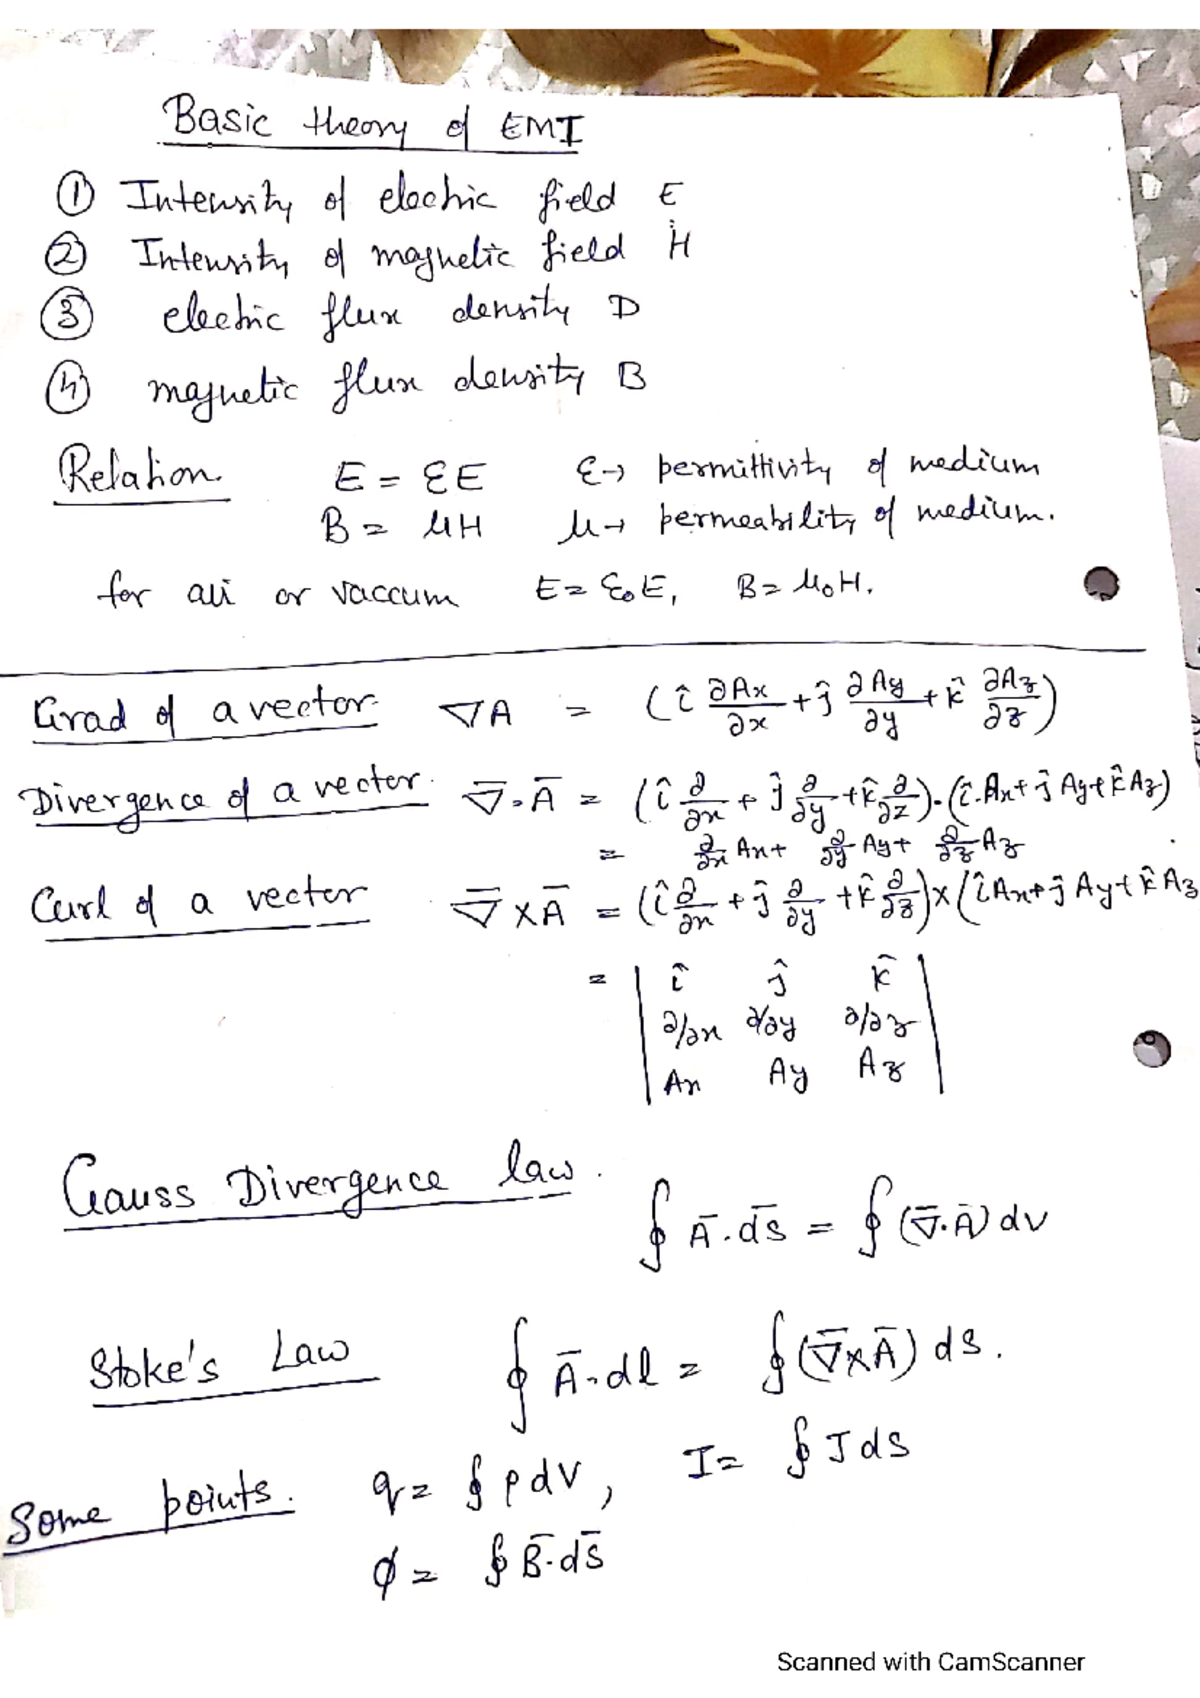 Basic theory of EMI
① Intensity of electric field E
② Intensity of magnetic field H
③ electric flux density D
④ magnetic flux density B
Relation E = ƐE Ɛ→ permittivity of medium
B = μH μ→ permeability of medium.
for air or vaccum E = Ɛ₀E, B = μ₀H.
Grad of a vector ∇A = (î ∂Ax/∂x + ĵ ∂Ay/∂y + k̂ ∂Az/∂z)
Divergence of a vector. ∇̄.Ā = (î ∂/∂x + ĵ ∂/∂y + k̂ ∂/∂z).(î.Ax + ĵ Ay + k̂ Az)
= ∂/∂x Ax + ∂/∂y Ay + ∂/∂z Az
Curl of a vector ∇̄ x Ā = (î ∂/∂x + ĵ ∂/∂y + k̂ ∂/∂z) x (î Ax + ĵ Ay + k̂ Az
= | î ĵ k̂ |
| ∂/∂x ∂/∂y ∂/∂z |
| Ax Ay Az |
Gauss Divergence law.
∮ Ā.ds̄ = ∮ (∇̄.Ā) dv
Stoke's Law ∮ Ā.dl = ∮ (∇̄xĀ) ds.
Some points. q = ∮ ρdV, I = ∮ J ds
ϕ = ∮ B̄.ds̄
Scanned with CamScanner